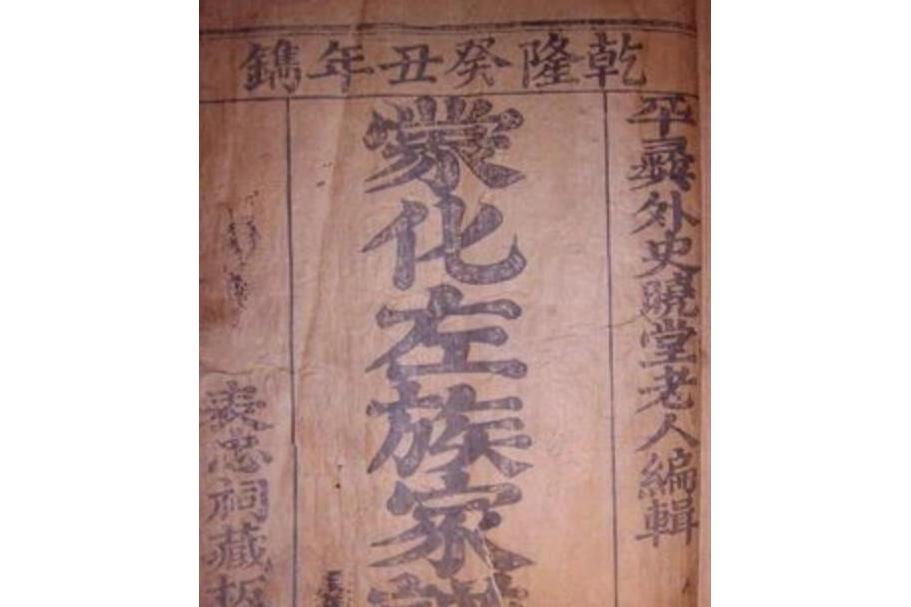 乾隆癸丑年鐫
平彝外史曉堂老人編輯
蒙化左族家譜
表忠祠藏板